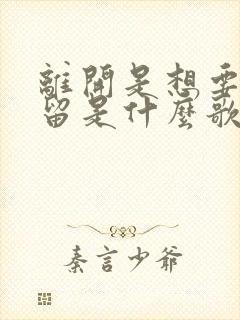 離開是想要
留是什麼歌
秦言少爺